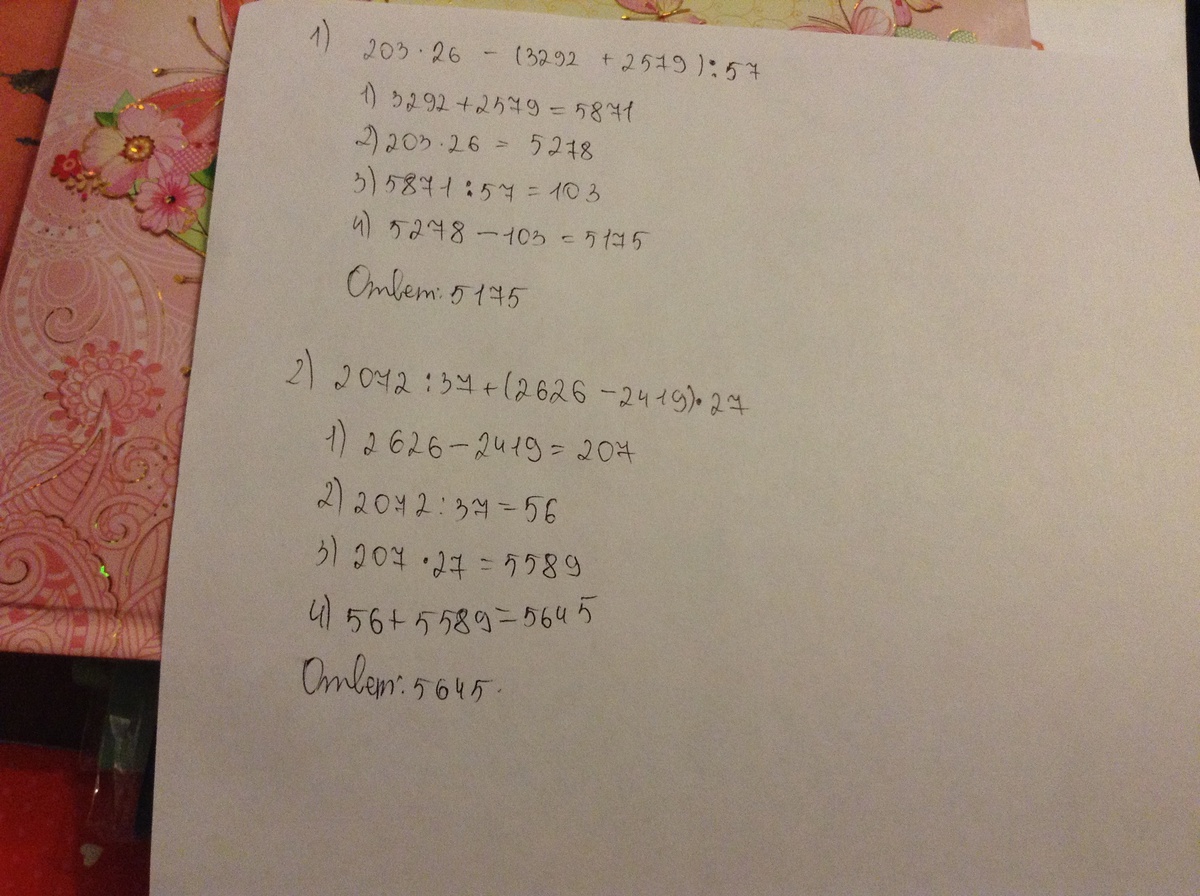 1) 203·26 - (3292 + 2579):57
1) 3292+2579=5871
2) 203·26 = 5278
3) 5871:57=103
4) 5278-103=5175
Ответ: 5175
2) 2072:37+(2626-2419)·27
1) 2626-2419=207
2) 2072:37=56
3) 207·27=5589
4) 56+5589=5645
Ответ: 5645.